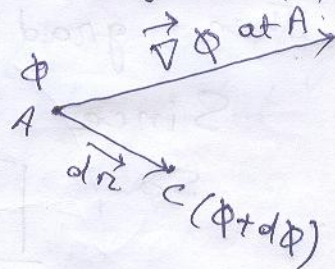 ∇⃗ Φ at A
Φ
A
dr⃗
C (Φ+dΦ)